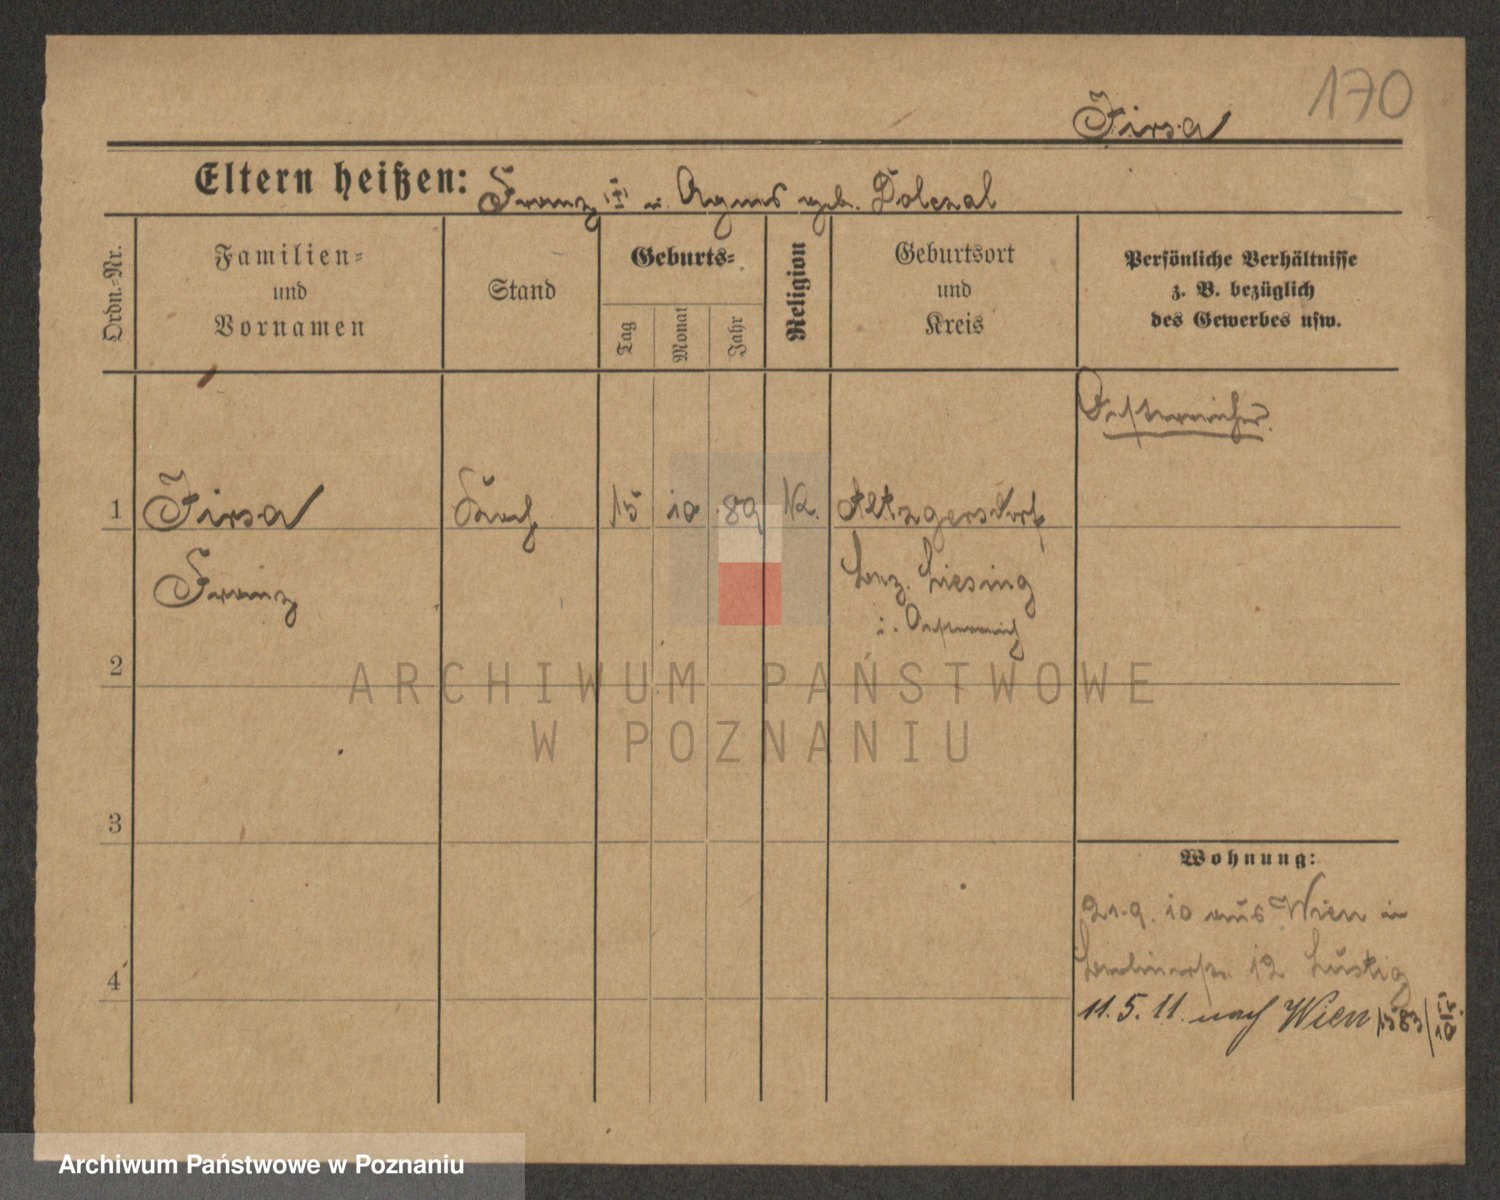 170
Jirsa
Eltern heißen: Franz u. Agnes geb. Dolezal
Ordn.-Nr.
Familien=
und
Vornamen
Stand
Geburts=
Tag
Monat
Jahr
Religion
Geburtsort
und
Kreis
Persönliche Verhältnisse
z. B. bezüglich
des Gewerbes usw.
Oesterreicher.
1
Jirsa
15 10 89 K. Atzgersdorf
Franz
Bez. Liesing
i. Oesterreich
2
ARCHIWUM PAŃSTWOWE
W POZNANIU
3
Wohnung:
21.9.10 aus Wien in
12 Lustig
4
11.5.11. nach Wien
Archiwum Państwowe w Poznaniu